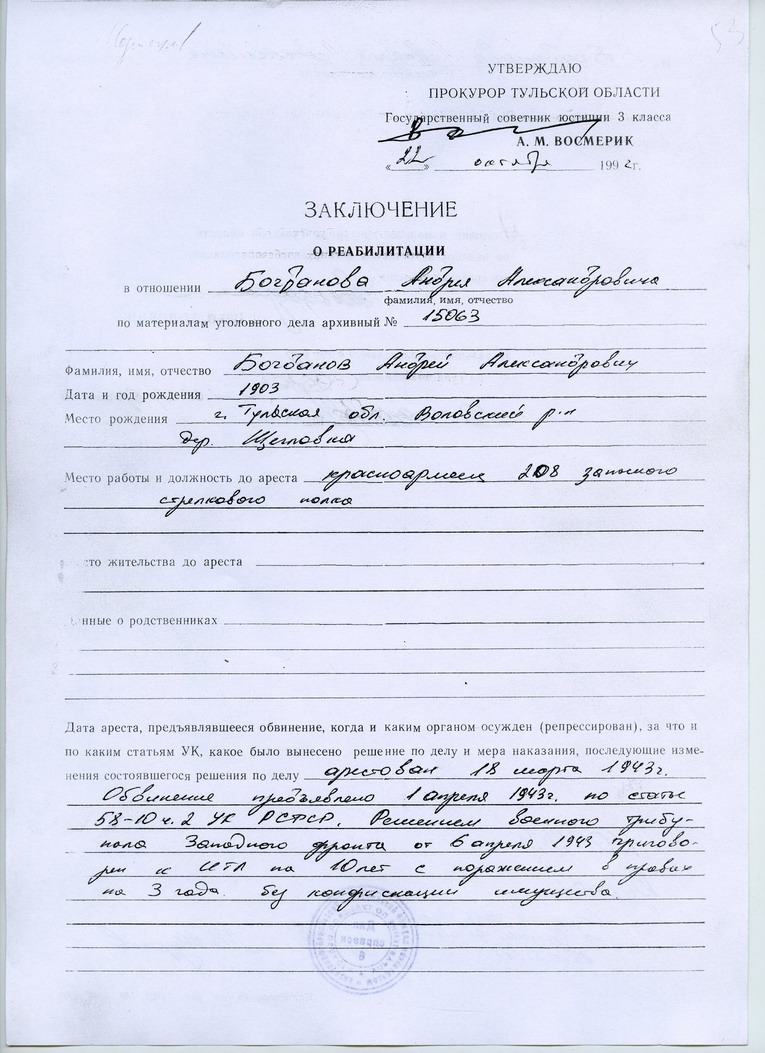 53
УТВЕРЖДАЮ
ПРОКУРОР ТУЛЬСКОЙ ОБЛАСТИ
Государственный советник юстиции 3 класса
А. М. ВОСМЕРИК
«22» октября 1992г.
ЗАКЛЮЧЕНИЕ
О РЕАБИЛИТАЦИИ
в отношении Богданова Андрея Александровича
фамилия, имя, отчество
по материалам уголовного дела архивный № 15063
Фамилия, имя, отчество Богданов Андрей Александрович
Дата и год рождения 1903
Место рождения г. Тульская обл. Воловский р-н
дер. Щегловка
Место работы и должность до ареста красноармеец 208 запасного
стрелкового полка
сто жительства до ареста
нные о родственниках
Дата ареста, предъявлявшееся обвинение, когда и каким органом осужден (репрессирован), за что и
по каким статьям УК, какое было вынесено решение по делу и мера наказания, последующие изме-
нения состоявшегося решения по делу арестован 18 марта 1943г.
Обвинение предъявлено 1 апреля 1943г. по статье
58-10 ч. 2 УК РСФСР. Решением военного трибу-
нала Западного фронта от 6 апреля 1943 пригово-
рен к ИТЛ на 10 лет с поражением в правах
на 3 года. без конфискации имущества.